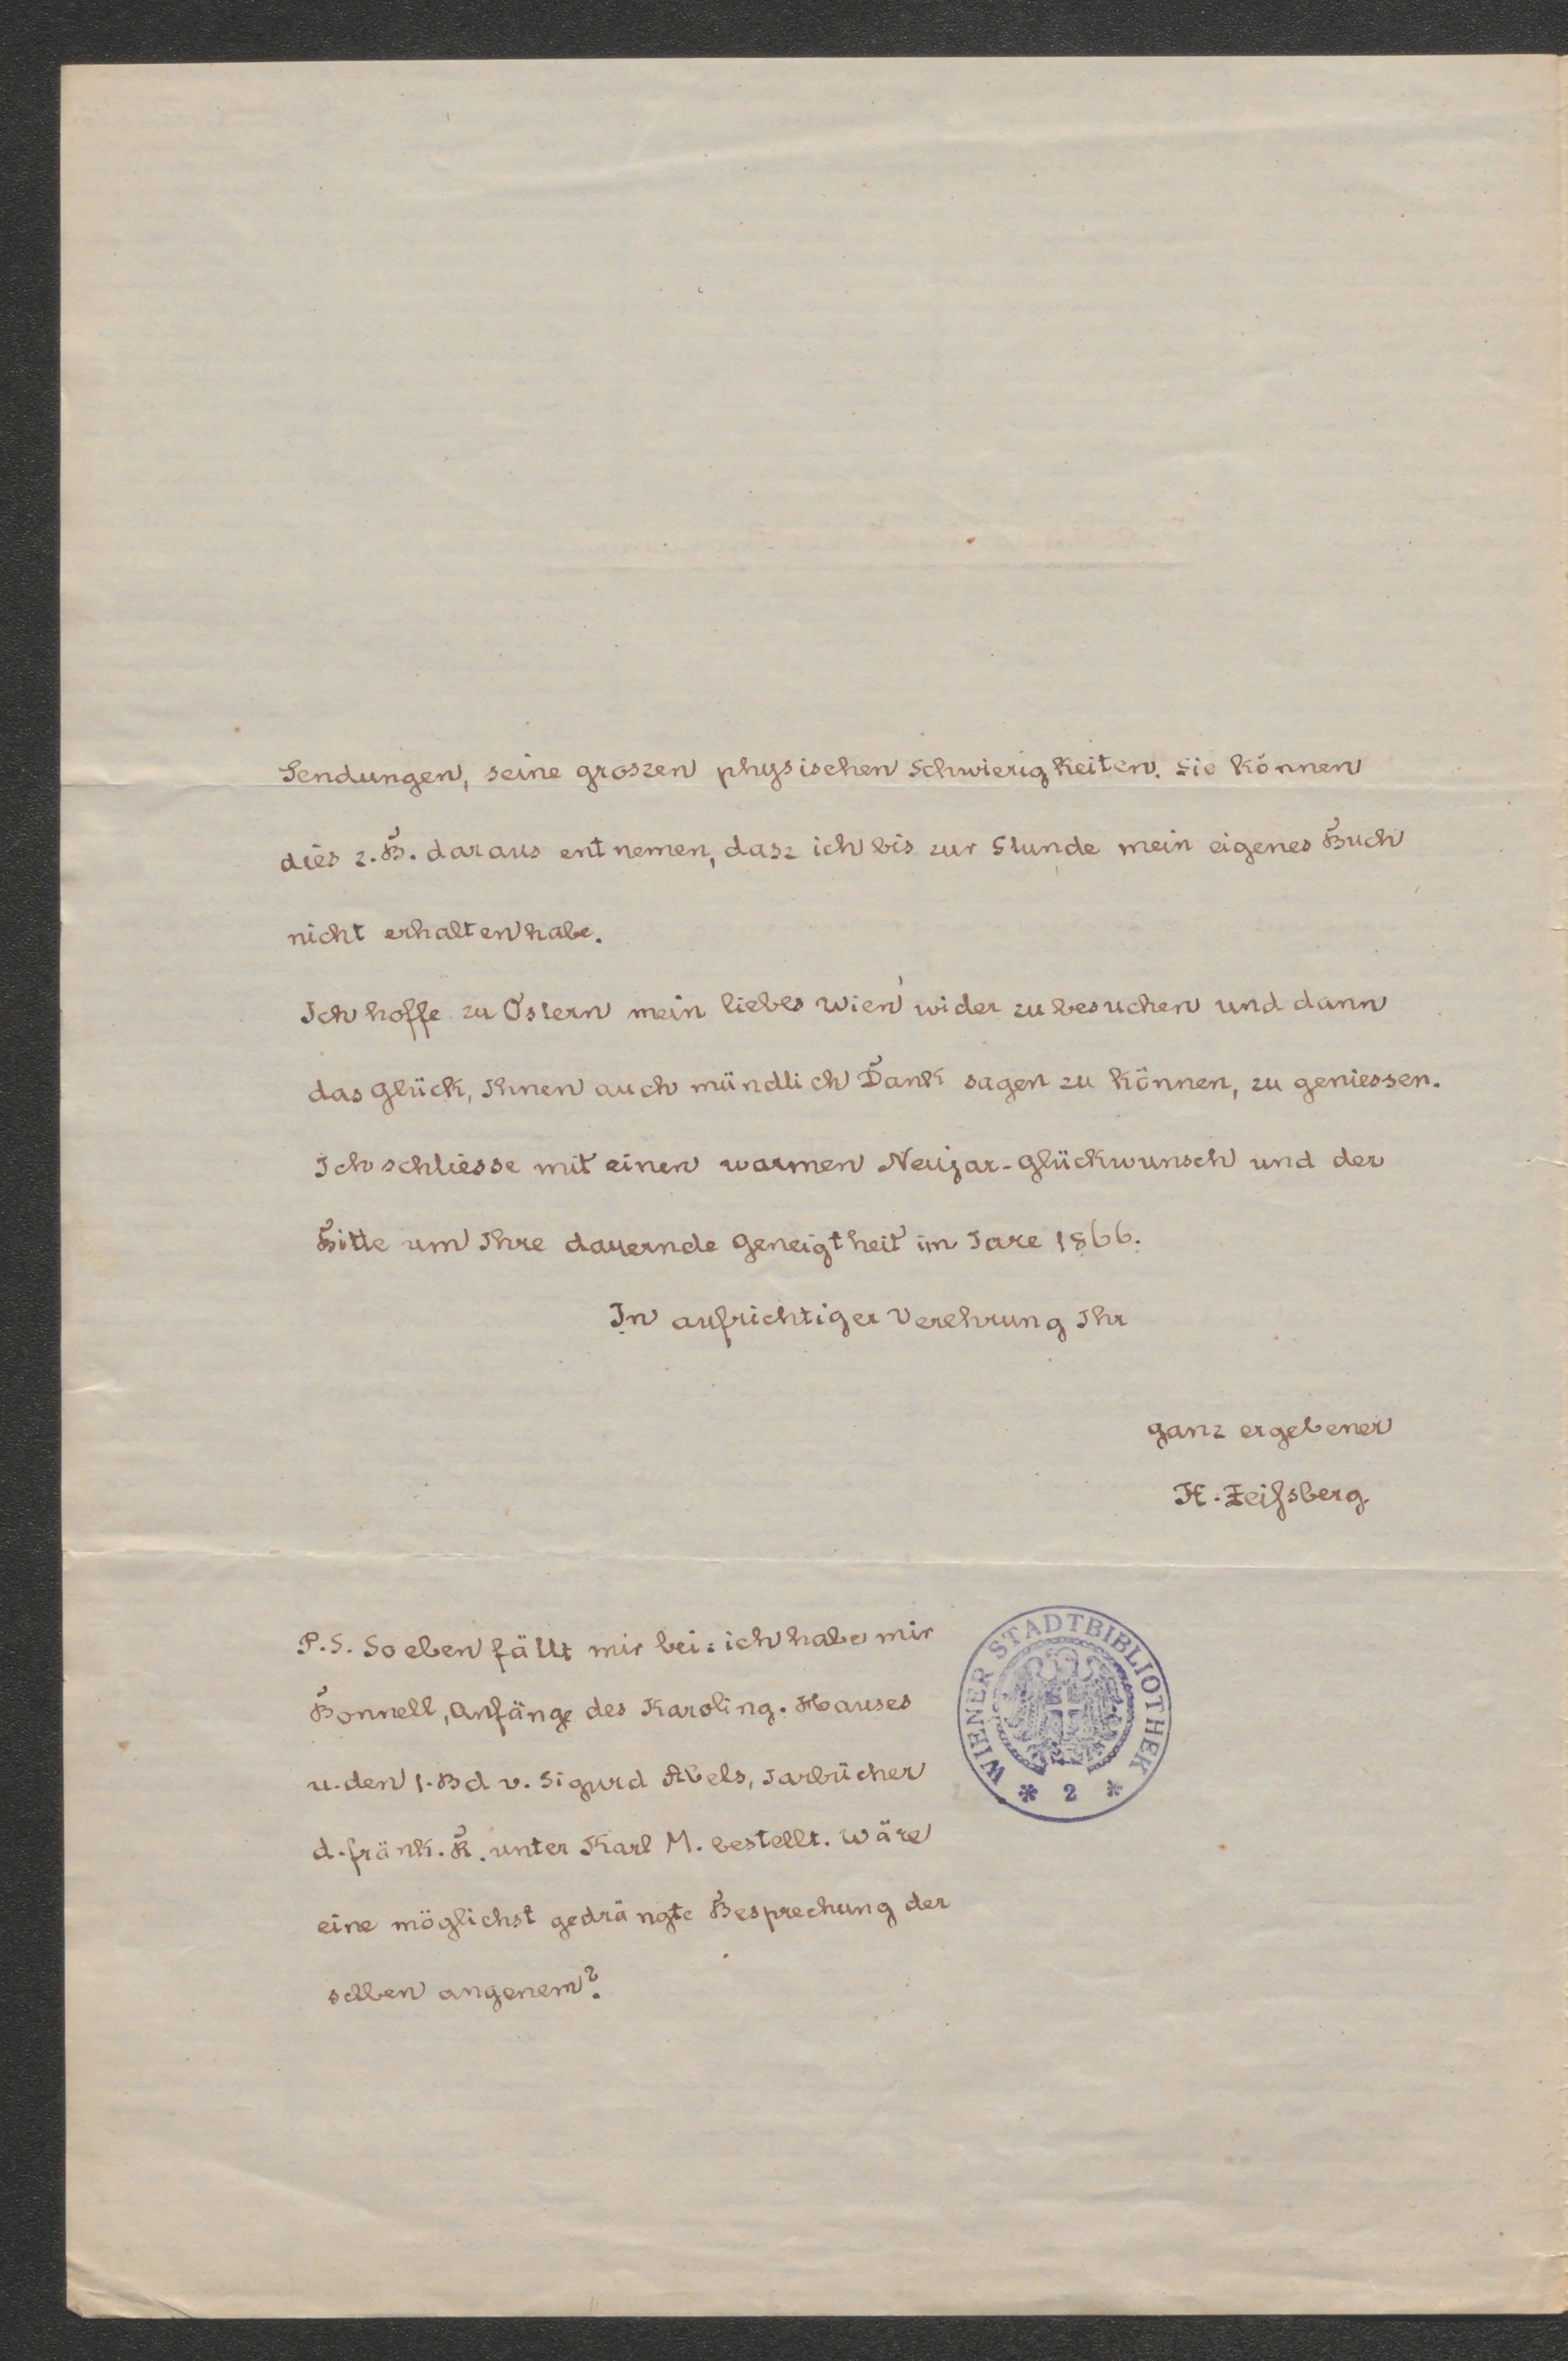 Sendungen, seine groszen physischen Schwierigkeiten. Sie können
dies z. B. daraus entnemen, dasz ich bis zur Stunde mein eigenes Buch
nicht erhalten habe.
Ich hoffe zu Ostern mein liebes Wien wider zu besuchen und dann
das Glück, Ihnen auch mündlich Dank sagen zu können, zu geniessen.
Ich schliesse mit einen warmen Neujar-Glückwunsch und der
Bitte um Ihre dauernde Geneigtheit im Jare 1866.
In aufrichtiger Verehrung Ihr
ganz ergebener
H. Zeißsberg
P.S. So eben fällt mir bei: ich habe mir
Bonnell, Anfänge des Karoling. Hauses
u. den 1. Bd v. Sigurd Abels, Jarbücher
d. fränk. R. unter Karl M. bestellt. Wäre
eine möglichst gedrängte Besprechung der
selben angenem?
WIENER STADTBIBLIOTHEK
* 2 *